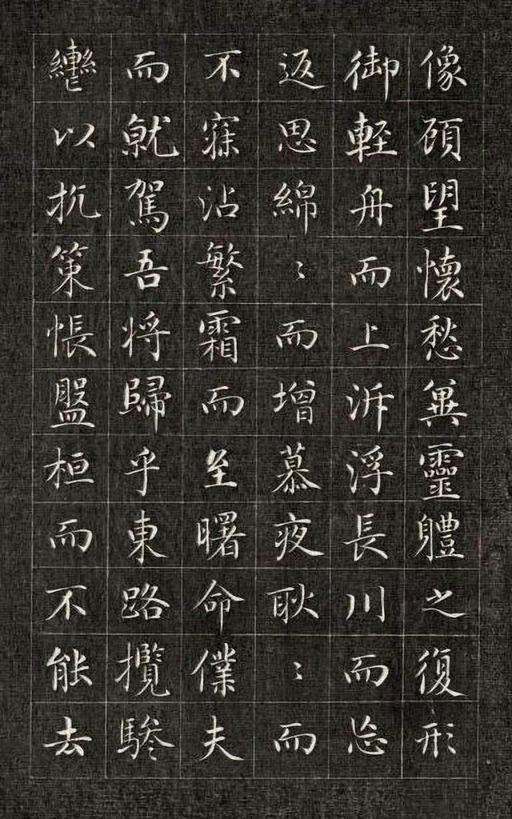 像頋望懷愁兾靈軆之復形
御輕舟而上泝浮長川而忘
返思綿〻而增慕夜耿〻而
不寐沾繁霜而至曙命僕夫
而就駕吾将歸乎東路攬騑
轡以抗策悵盤桓而不能去